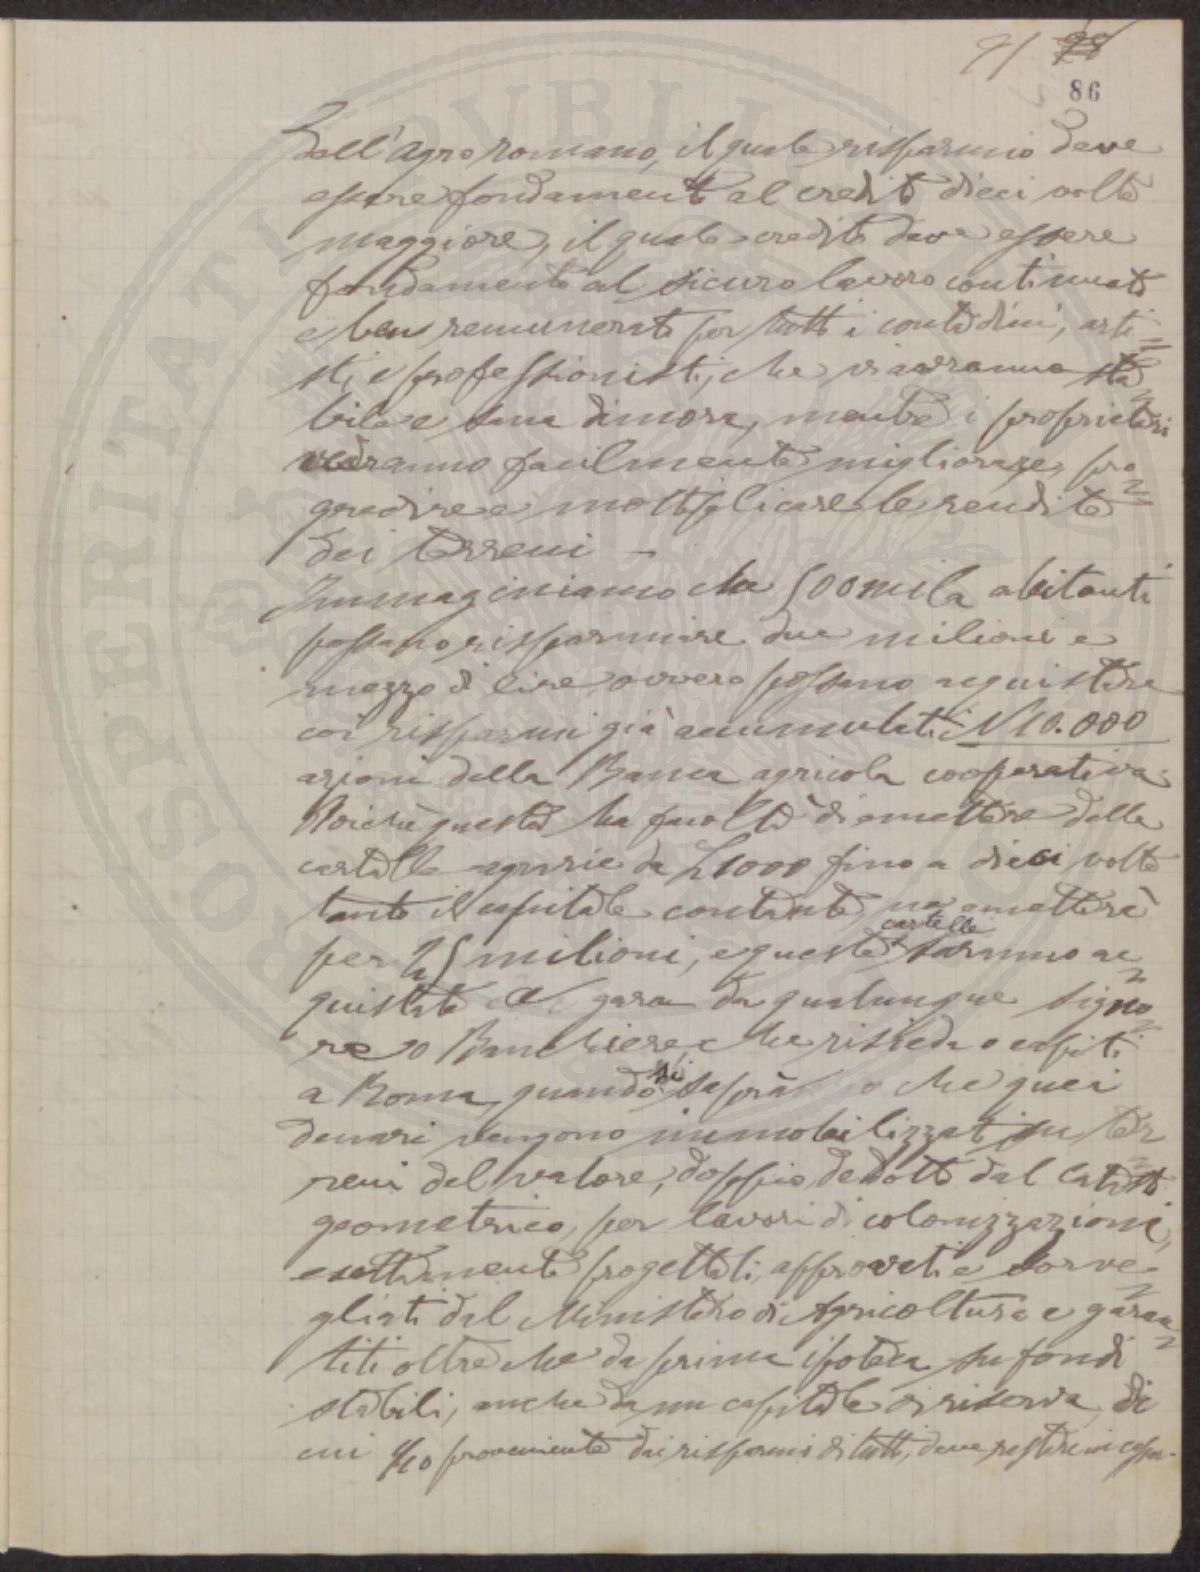 91 98
86
dell'Agro romano, il quale risparmio deve
essere fondamento al credito dieci volte
maggiore, il quale credito deve essere
fondamento al sicuro lavoro continuato
e ben remunerato per tutti i contadini, arti=
sti e professionisti, che vi avranno sta=
bile e sana dimora, mentre i proprietari
vedranno facilmente migliorare, pro=
gredire e moltiplicare le rendite
dei terreni —
Immaginiamo che 500mila abitanti
possano risparmiare due milioni e
mezzo di lire, ovvero possano acquistare
coi risparmi già accumulati N 10.000
azioni della Banca agricola cooperativa
Poichè questa ha facoltà di emettere delle
cartelle agrarie da L 1000 fino a dieci volte
tanto il capitale contante, ne emetterà
per 25 milioni, e queste cartelle saranno ac=
quistate a gara da qualunque signo=
re o Banchiere, che risieda o capiti
a Roma, quando si saprà che quei
denari vengono immobilizzati su ter=
reni del valore, doppio, dedotto dal Catasto
geometrico, per lavori di colonizzazioni,
esattamente progettati, approvati e sorve=
gliati dal Ministero di Agricoltura e garan=
titi oltre che da prima ipoteca su fondi
stabili, anche da un capitale di riserva, di
cui 1/10 proveniente dai risparmi di tutti, deve restare in